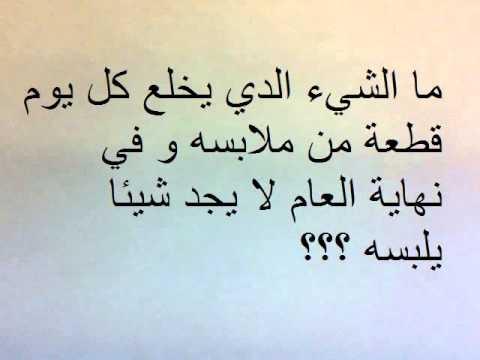 ما الشيء الدي يخلع كل يوم
قطعة من ملابسه و في
نهاية العام لا يجد شيئا
يلبسه ؟؟؟